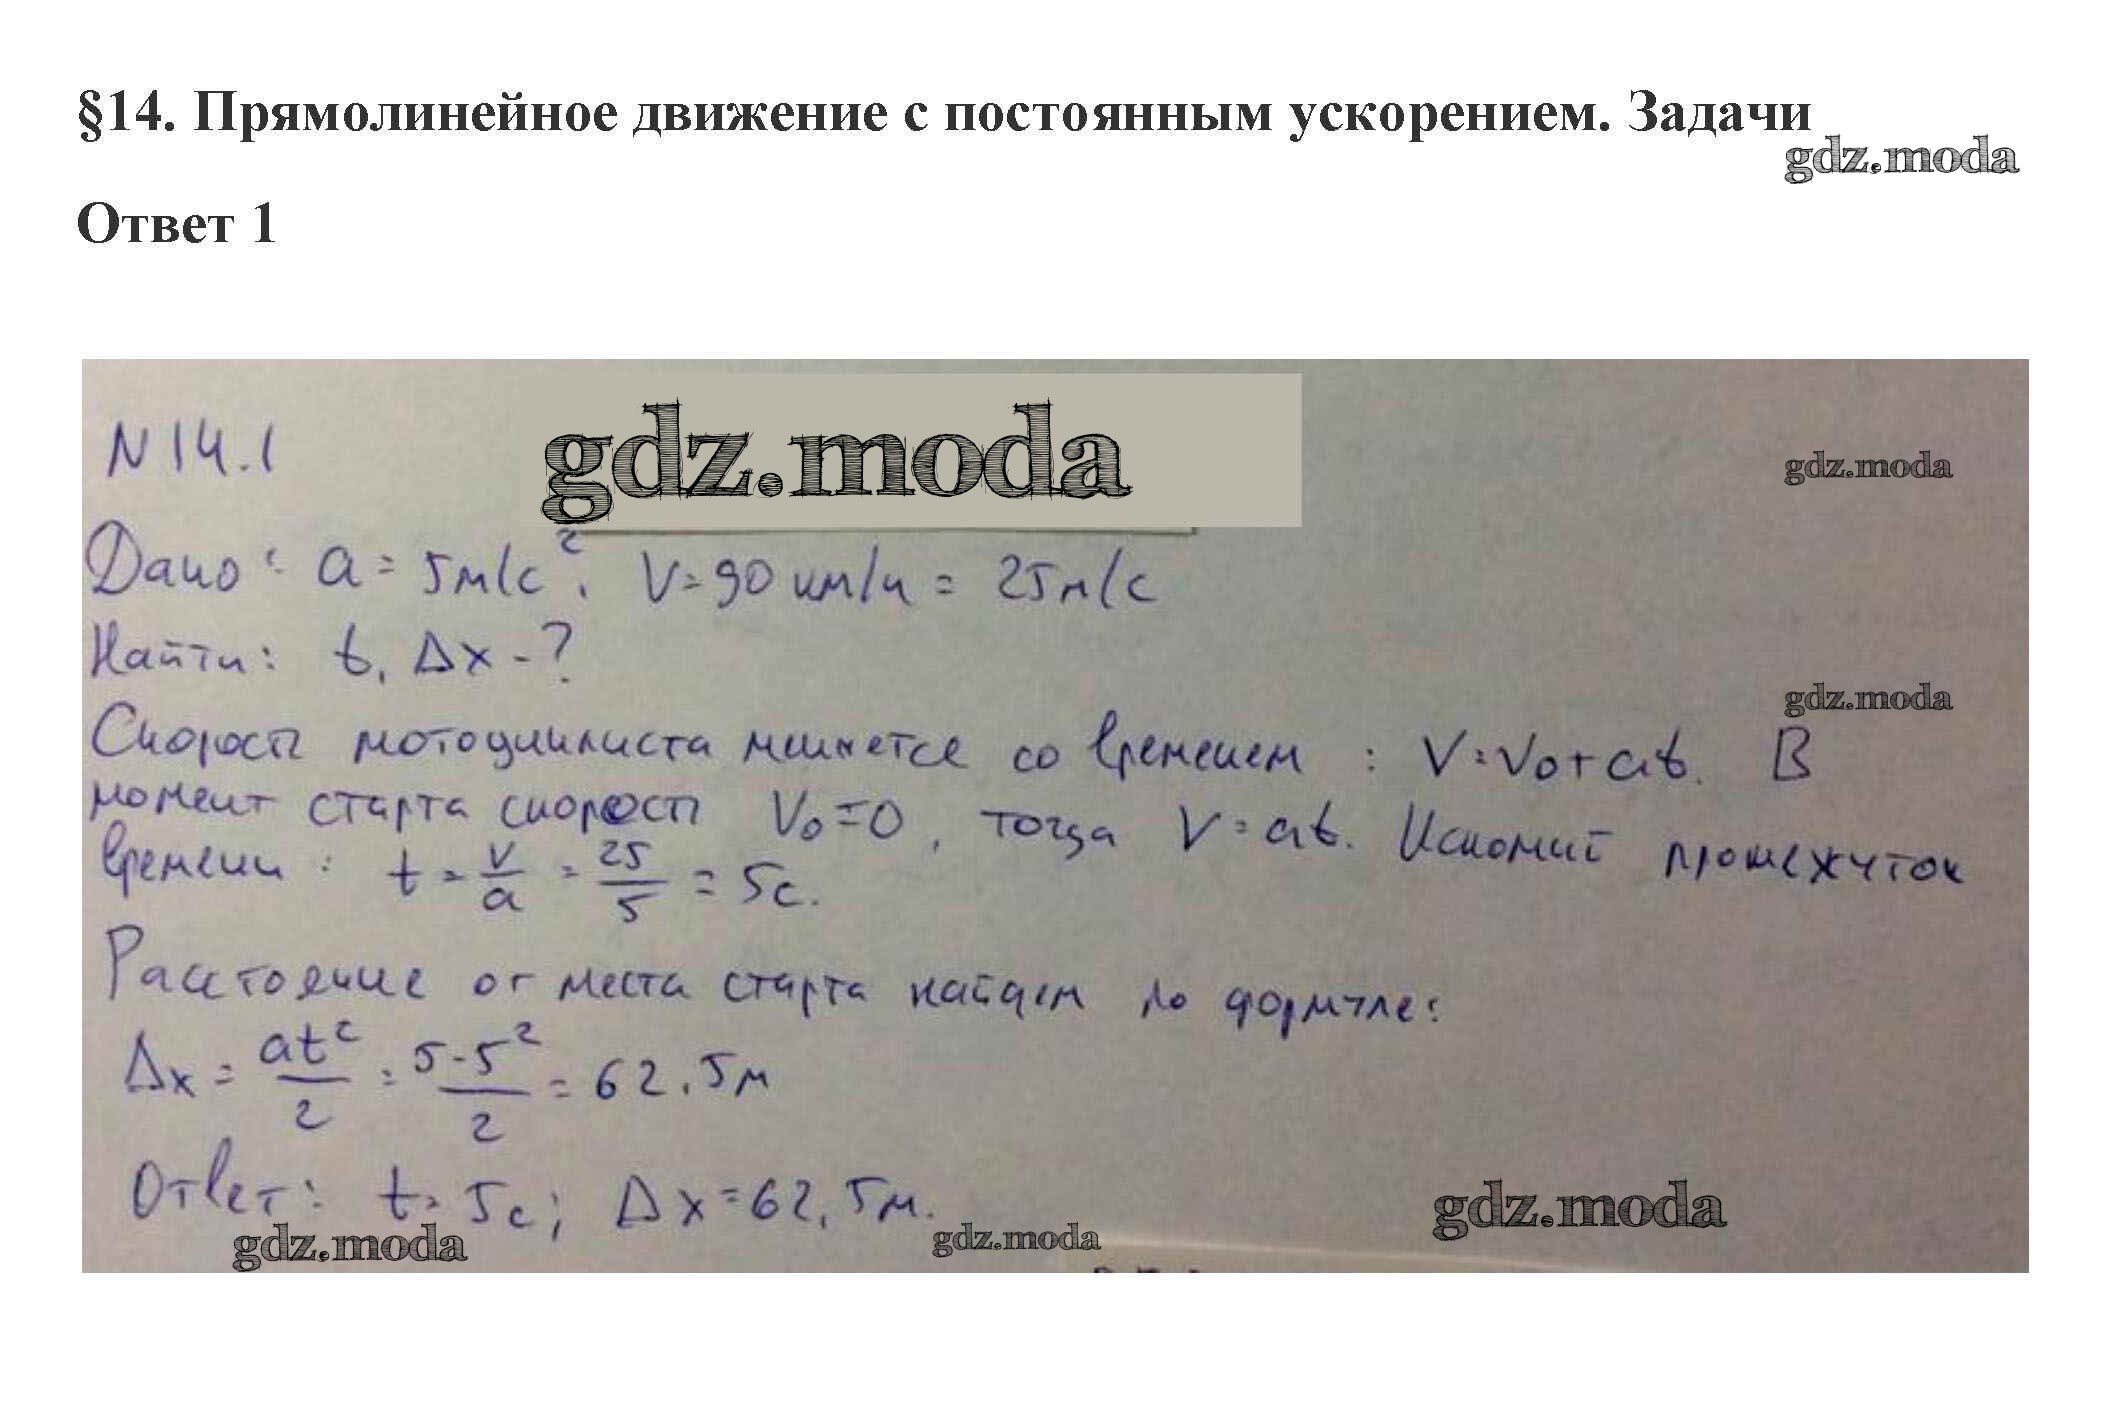 §14. Прямолинейное движение с постоянным ускорением. Задачи
gdz.moda
Ответ 1
N 14.1
gdz.moda
gdz.moda
Дано: a = 5м/с², V = 90 км/ч = 25м/с
Найти: t, Δx - ?
gdz.moda
Скорость мотоциклиста меняется со временем : V = V₀ + at. В
момент старта скорость V₀ = 0, тогда V = at. Искомий промежуток
времени : t = V/a = 25/5 = 5с.
Расстояние от места старта найдем по формуле:
Δx = at²/2 = 5·5²/2 = 62.5м
Ответ: t = 5с; Δx = 62,5м.
gdz.moda
gdz.moda
gdz.moda